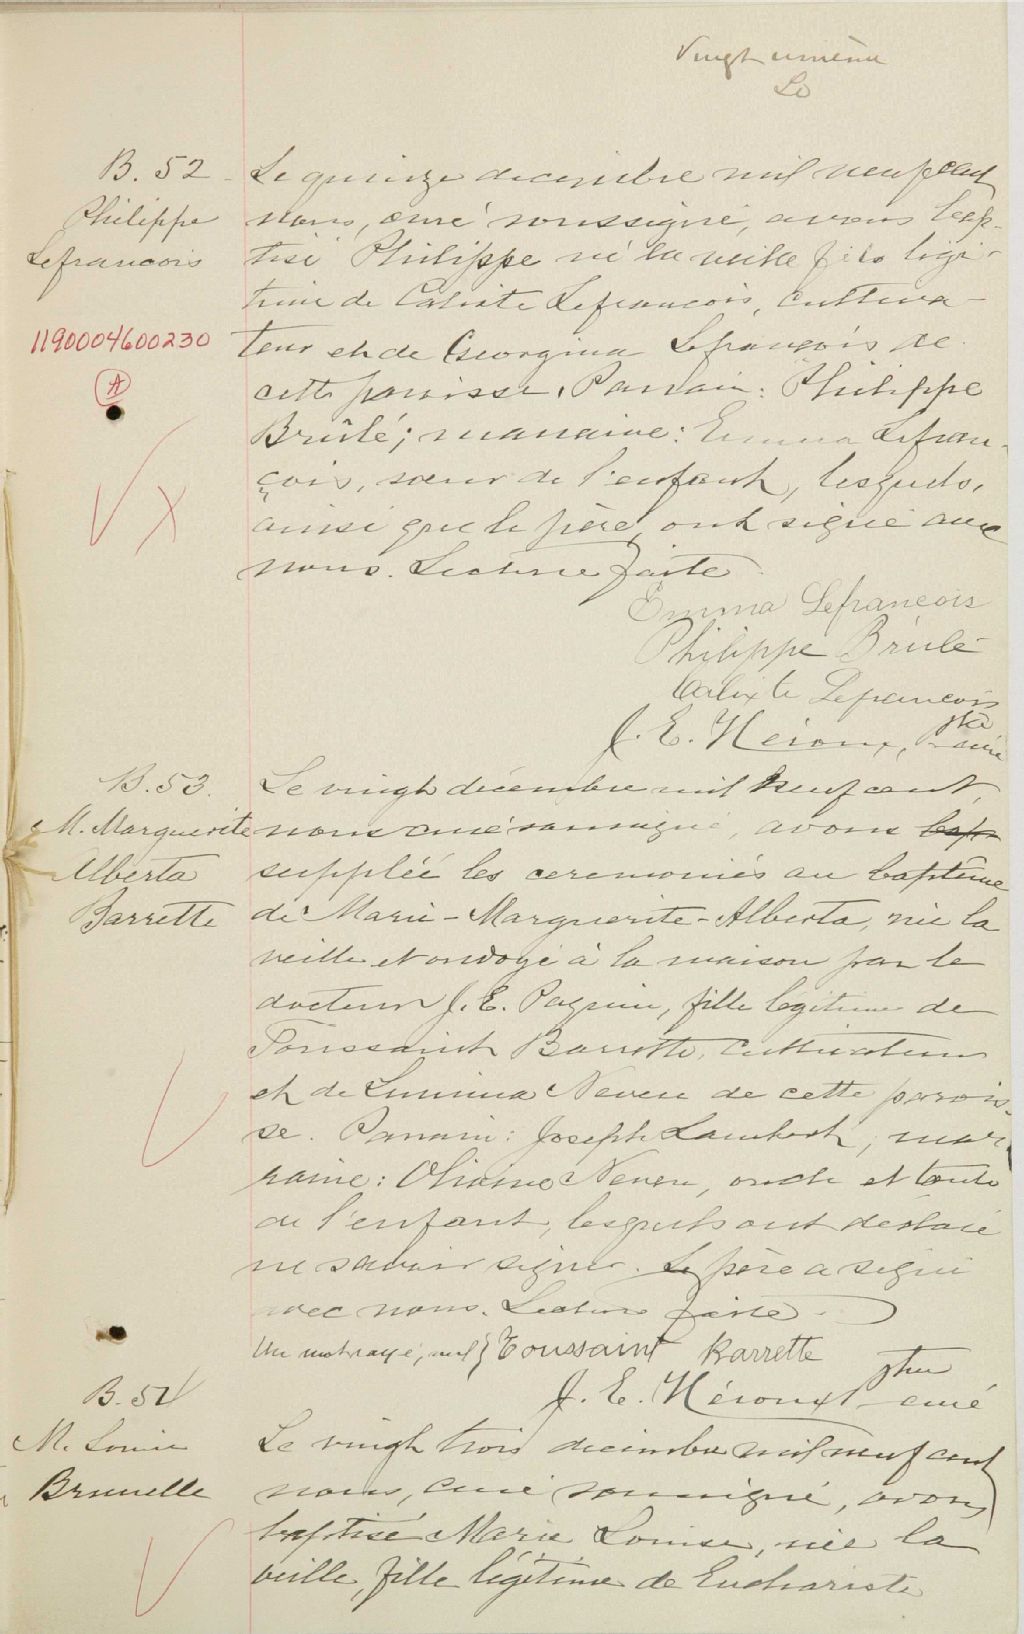 Vingt unième
Lo
B. 52
Philippe
Lefrancois
1190004600230
A
Le quinze decembre mil neuf cent
nous, curé soussigné, avons bap-
tisé Philippe né la veille fils légi-
time de Calixte Lefrancois, cultiva-
teur et de Georgina Lefrançois de
cette paroisse. Parrain: Philippe
Brûlé; marraine: Emma Lefran-
çois, soeur de l'enfant, lesquels,
ainsi que le père, ont signé avec
nous. Lecture faite.
Emma Lefrancois
Philippe Brulé
Calixte Lefrancois
J. E. Héroux, Ptre curé
B. 53.
M. Marguerite
Alberta
Barrette
Le vingt décembre mil neuf cent
nous curé soussigné, avons bap
supplée les ceremonies au baptême
de Marie-Marguerite-Alberta, née la
veille et ondoyé à la maison par le
docteur J. E. Paquin, fille légitime de
Toussaint Barrette, cultivateur
et de Neveu de cette parois-
se. Parrain: Joseph Lambert, mar-
raine: Neveu, oncle et tante
de l'enfant, lesquels ont déclaré
ne savoir signer. Le père a signé
avec nous. Lecture faite.
Un mot rayé, nul } Toussaint Barrette
J. E. Héroux ptre curé
B. 54
M. Louise
Brunelle
Le vingt trois decembre mil neuf cent
nous, curé soussigné, avons
baptisé Marie Louise, née la
veille, fille légitime de Euchariste